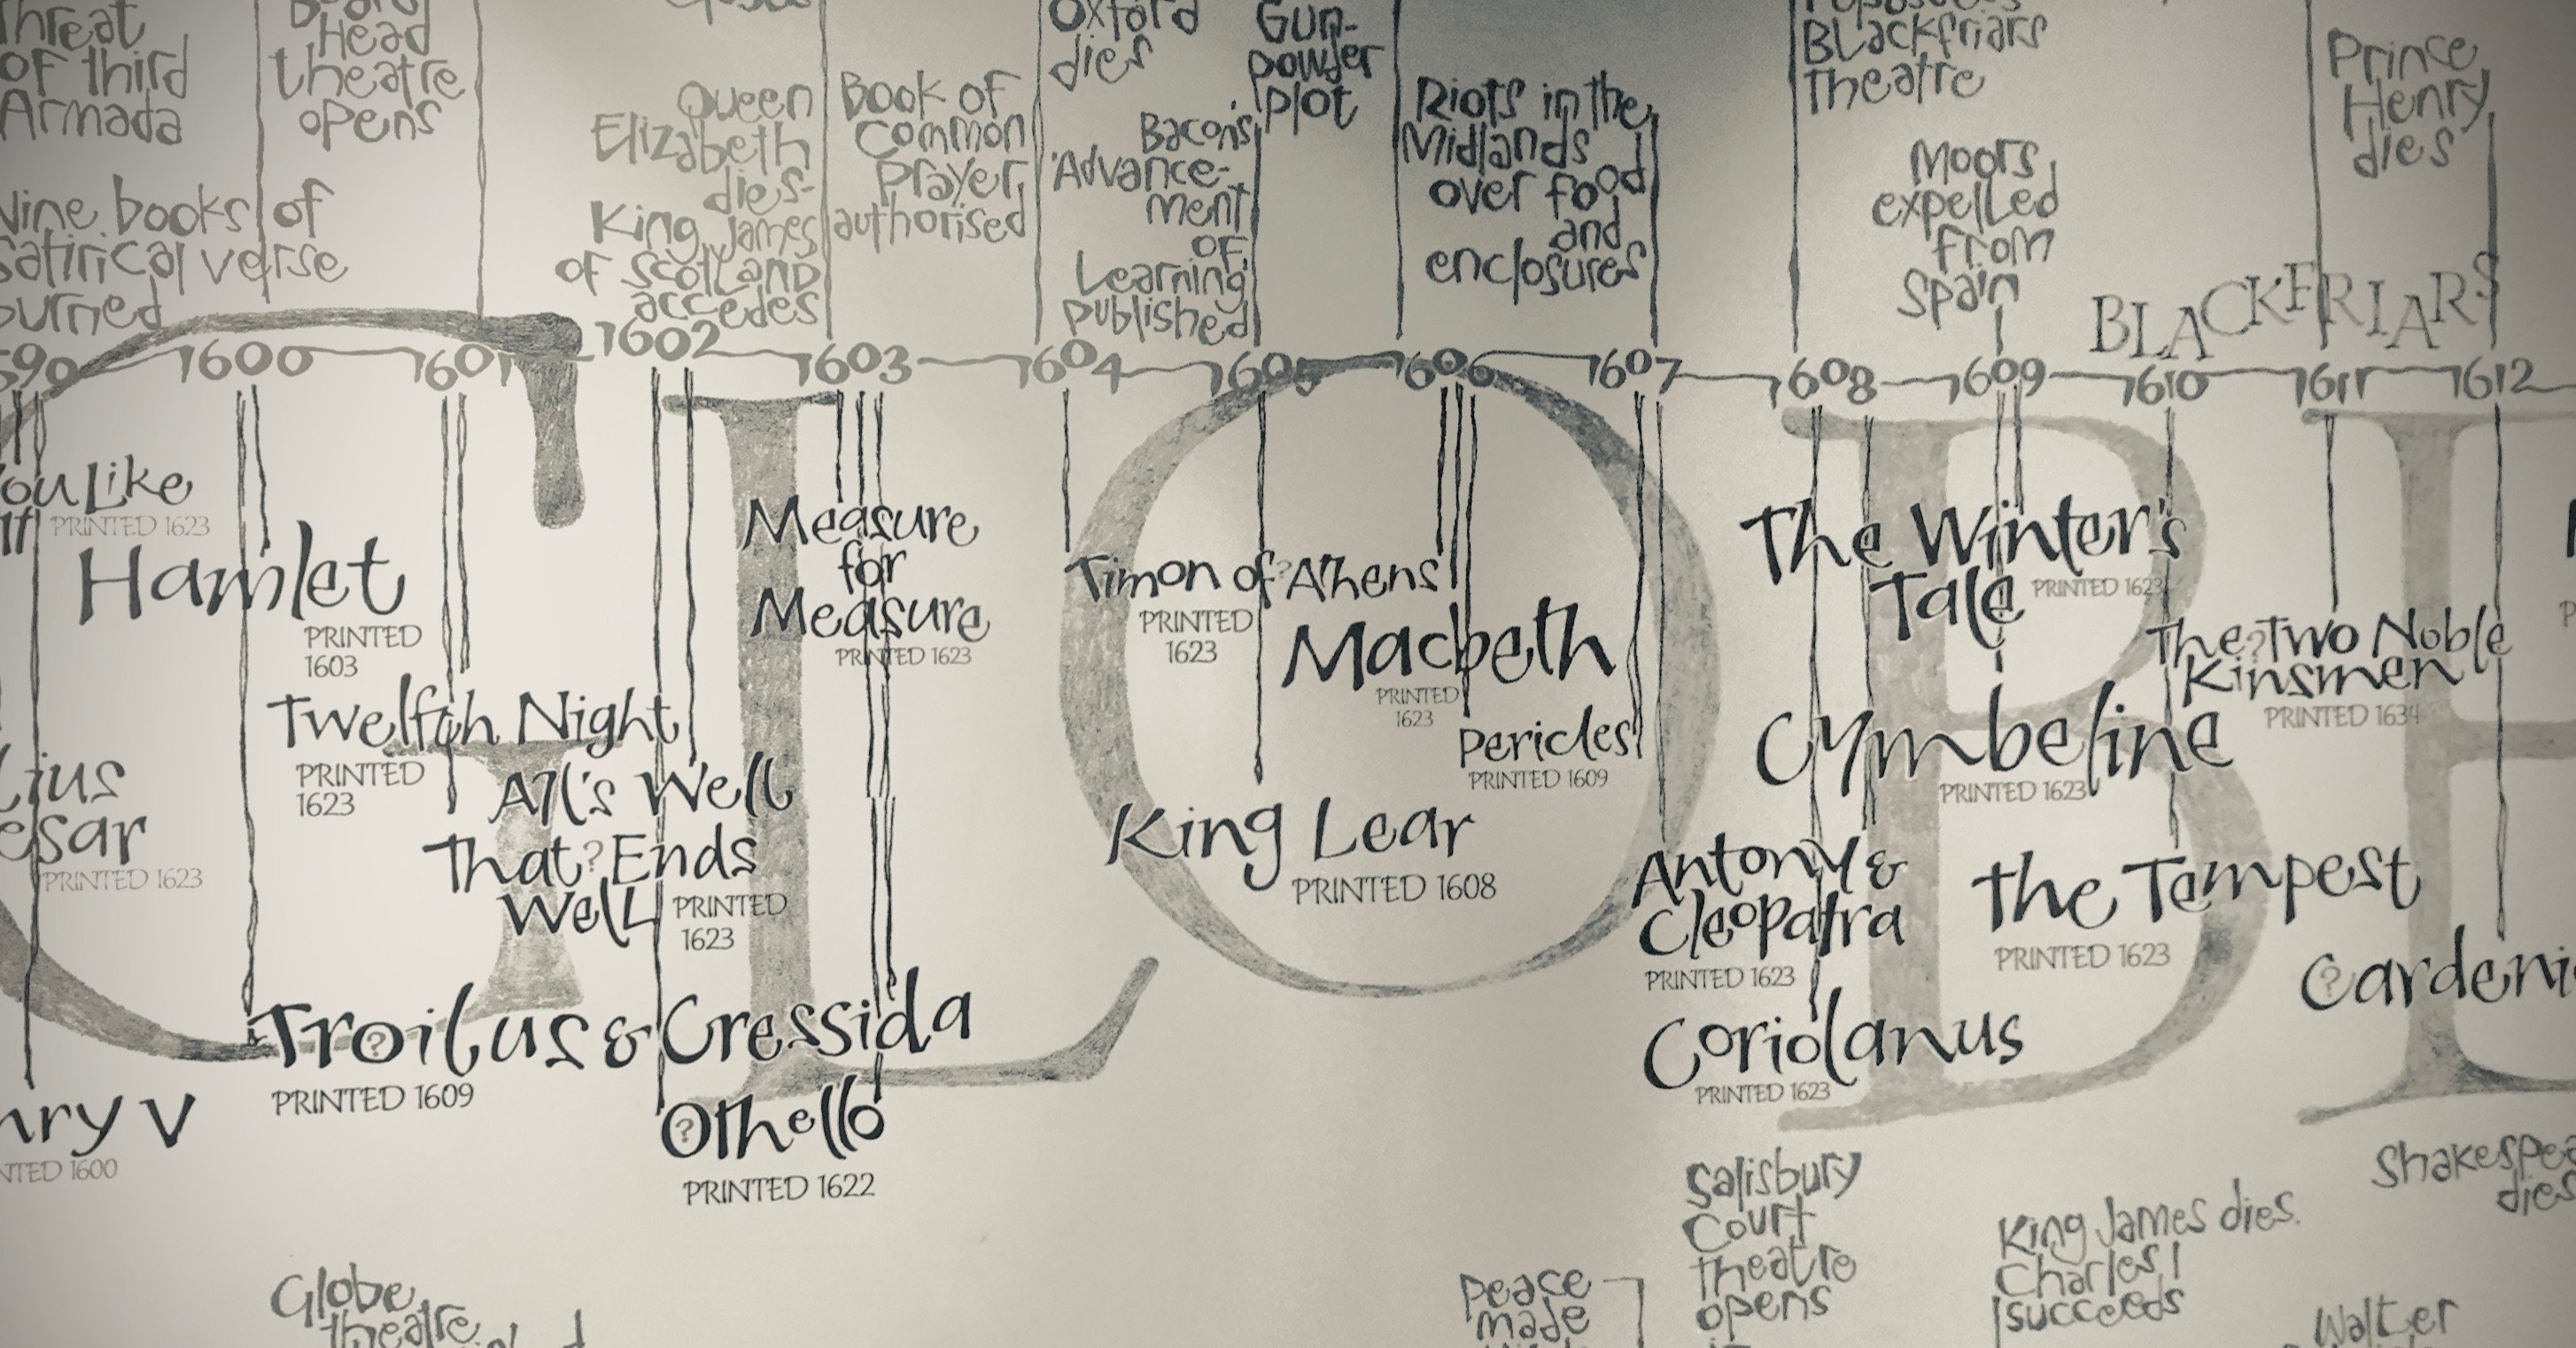 Threat
of third
Armada
Nine books of
satirical verse
burned
Head
theatre
opens
Queen
Elizabeth
dies-
King James
of Scotland
accedes
Book of
Common
Prayer
authorised
Oxford
dies
Bacon's
'Advance-
ment
of
Learning'
published
Gun-
powder
plot
Riots in the
Midlands
over food
and
enclosures
Blackfriars
Theatre
Moors
expelled
from
Spain
BLACKFRIARS
Prince
Henry
dies
1600 1601 1602 1603 1604 1605 1606 1607 1608 1609 1610 1611 1612
GLOBE
You Like
It
PRINTED 1623
Hamlet
PRINTED
1603
Twelfth Night
PRINTED
1623
All's Well
That? Ends
Well
PRINTED
1623
PRINTED 1623
Troilus & Cressida
?
PRINTED 1609
nry V
NTED 1600
Othello
?
PRINTED 1622
Measure
for
Measure
PRINTED 1623
Timon of ?Athens
PRINTED
1623
Macbeth
PRINTED
1623
Pericles
PRINTED 1609
King Lear
PRINTED 1608
Antony &
Cleopatra
PRINTED 1623
Coriolanus
PRINTED 1623
The Winter's
Tale
PRINTED 1623
Cymbeline
PRINTED 1623
The Tempest
PRINTED 1623
The ?Two Noble
Kinsmen
PRINTED 1634
?
Cardeni
Globe
theatre
Peace
made
Salisbury
Court
theatre
opens
King James dies.
Charles I
succeeds
Shakespea
dies
Walter